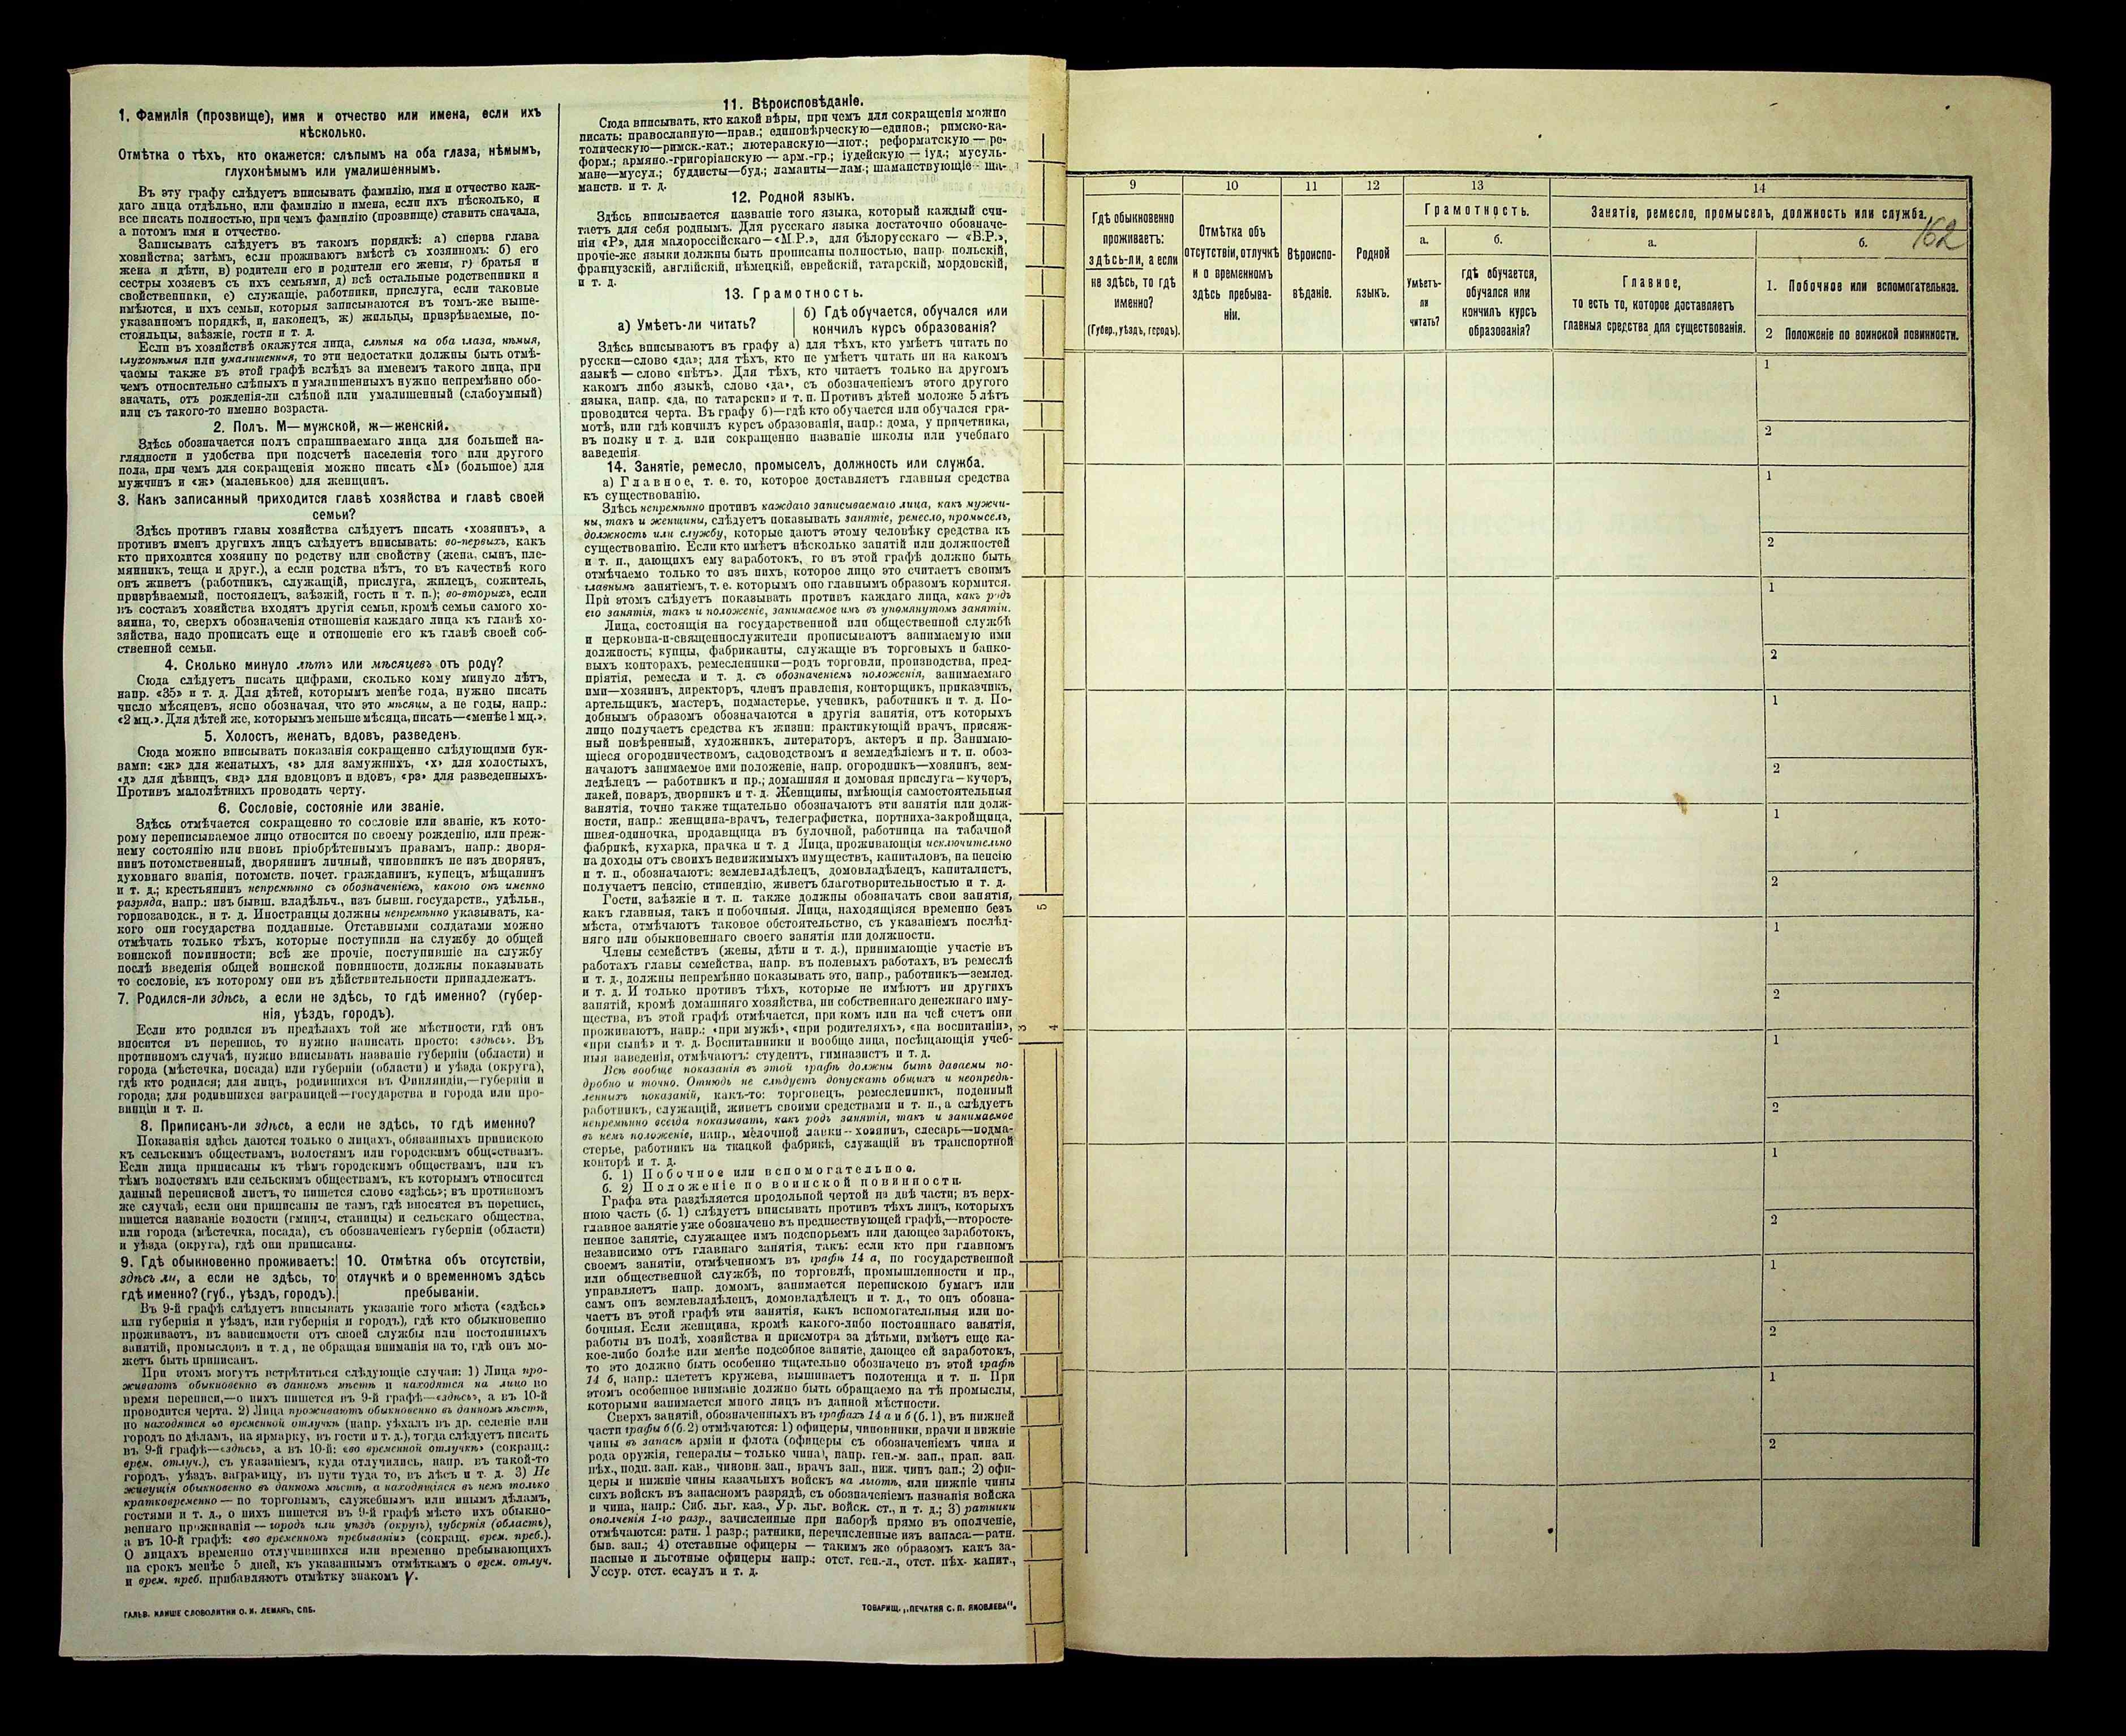 1. Фамилія (прозвище), имя и отчество или имена, если ихъ
нѣсколько.
Отмѣтка о тѣхъ, кто окажется: слѣпымъ на оба глаза, нѣмымъ,
глухонѣмымъ или умалишеннымъ.
Въ эту графу слѣдуетъ вписывать фамилію, имя и отчество каж-
даго лица отдѣльно, или фамилію и имена, если ихъ нѣсколько, и
все писать полностью, при чемъ фамилію (прозвище) ставить сначала,
а потомъ имя и отчество.
Записывать слѣдуетъ въ такомъ порядкѣ: а) сперва глава
хозяйства; затѣмъ, если проживаютъ вмѣстѣ съ хозяиномъ: б) его
жена и дѣти, в) родители его и родители его жены, г) братья и
сестры хозяевъ съ ихъ семьями, д) всѣ остальные родственники и
свойственники, е) служащіе, работники, прислуга, если таковые
имѣются, и ихъ семьи, которыя записываются въ томъ-же выше-
указанномъ порядкѣ, и, наконецъ, ж) жильцы, призрѣваемые, по-
стояльцы, заѣзжіе, гости и т. д.
Если въ хозяйствѣ окажутся лица, слѣпыя на оба глаза, нѣмыя,
глухонѣмыя или умалишенныя, то эти недостатки должны быть отмѣ-
чаемы также въ этой графѣ вслѣдъ за именемъ такого лица, при
чемъ относительно слѣпыхъ и умалишенныхъ нужно непремѣнно обо-
значать, отъ рожденія-ли слѣпой или умалишенный (слабоумный)
или съ такого-то именно возраста.
2. Полъ. М— мужской, ж—женскій.
Здѣсь обозначается полъ спрашиваемаго лица для большей на-
глядности и удобства при подсчетѣ населенія того или другого
пола, при чемъ для сокращенія можно писать «М» (большое) для
мужчинъ и «ж» (маленькое) для женщинъ.
3. Какъ записанный приходится главѣ хозяйства и главѣ своей
семьи?
Здѣсь противъ главы хозяйства слѣдуетъ писать «хозяинъ», а
противъ именъ другихъ лицъ слѣдуетъ вписывать: во-первыхъ, какъ
кто приходится хозяину по родству или свойству (жена, сынъ, пле-
мянникъ, теща и друг.), а если родства нѣтъ, то въ качествѣ кого
онъ живетъ (работникъ, служащій, прислуга, жилецъ, сожитель,
призрѣваемый, постоялецъ, заѣзжій, гость и т. п.); во-вторыхъ, если
въ составъ хозяйства входятъ другія семьи, кромѣ семьи самого хо-
зяина, то, сверхъ обозначенія отношенія каждаго лица къ главѣ хо-
зяйства, надо прописать еще и отношеніе его къ главѣ своей соб-
ственной семьи.
4. Сколько минуло лѣтъ или мѣсяцевъ отъ роду?
Сюда слѣдуетъ писать цифрами, сколько кому минуло лѣтъ,
напр. «35» и т. д. Для дѣтей, которымъ менѣе года, нужно писать
число мѣсяцевъ, ясно обозначая, что это мѣсяцы, а не годы, напр.:
«2 мц.». Для дѣтей же, которымъ меньше мѣсяца, писать—«менѣе 1 мц.».
5. Холостъ, женатъ, вдовъ, разведенъ.
Сюда можно вписывать показанія сокращенно слѣдующими бук-
вами: «ж» для женатыхъ, «з» для замужнихъ, «х» для холостыхъ,
«д» для дѣвицъ, «вд» для вдовцовъ и вдовъ, «рз» для разведенныхъ.
Противъ малолѣтнихъ проводить черту.
6. Сословіе, состояніе или званіе.
Здѣсь отмѣчается сокращенно то сословіе или званіе, къ кото-
рому переписываемое лицо относится по своему рожденію, или преж-
нему состоянію или вновь пріобрѣтеннымъ правамъ, напр.: дворя-
нинъ потомственный, дворянинъ личный, чиновникъ не изъ дворянъ,
духовнаго званія, потомств. почет. гражданинъ, купецъ, мѣщанинъ
и т. д.; крестьянинъ непремѣнно съ обозначеніемъ, какого онъ именно
разряда, напр.: изъ бывш. владѣльч., изъ бывш. государств., удѣльн.,
горнозаводск., и т. д. Иностранцы должны непремѣнно указывать, ка-
кого они государства подданные. Отставными солдатами можно
отмѣчать только тѣхъ, которые поступили на службу до общей
воинской повинности; всѣ же прочіе, поступившіе на службу
послѣ введенія общей воинской повинности, должны показывать
то сословіе, къ которому они въ дѣйствительности принадлежатъ.
7. Родился-ли здѣсь, а если не здѣсь, то гдѣ именно? (губер-
нія, уѣздъ, городъ).
Если кто родился въ предѣлахъ той же мѣстности, гдѣ онъ
вносится въ перепись, то нужно написать просто: «здѣсь». Въ
противномъ случаѣ, нужно вписывать названіе губерніи (области) и
города (мѣстечка, посада) или губерніи (области) и уѣзда (округа),
гдѣ кто родился; для лицъ, родившихся въ Финляндіи,—губерніи и
города; для родившихся заграницей—государства и города или про-
винціи и т. п.
8. Приписанъ-ли здѣсь, а если не здѣсь, то гдѣ именно?
Показанія здѣсь даются только о лицахъ, обязанныхъ припискою
къ сельскимъ обществамъ, волостямъ или городскимъ обществамъ.
Если лица приписаны къ тѣмъ городскимъ обществамъ, или къ
тѣмъ волостямъ или сельскимъ обществамъ, къ которымъ относится
данный переписной листъ, то пишется слово «здѣсь»; въ противномъ
же случаѣ, если они приписаны не тамъ, гдѣ вносятся въ перепись,
пишется названіе волости (гмины, станицы) и сельскаго общества,
или города (мѣстечка, посада), съ обозначеніемъ губерніи (области)
и уѣзда (округа), гдѣ они приписаны.
9. Гдѣ обыкновенно проживаетъ:
здѣсь ли, а если не здѣсь, то
гдѣ именно? (губ., уѣздъ, городъ).
10. Отмѣтка объ отсутствіи,
отлучкѣ и о временномъ здѣсь
пребываніи.
Въ 9-й графѣ слѣдуетъ вписывать указаніе того мѣста («здѣсь»
или губернія и уѣздъ, или губернія и городъ), гдѣ кто обыкновенно
проживаетъ, въ зависимости отъ своей службы или постоянныхъ
занятій, промысловъ и т. д, не обращая вниманія на то, гдѣ онъ мо-
жетъ быть приписанъ.
При этомъ могутъ встрѣтиться слѣдующіе случаи: 1) Лица про-
живаютъ обыкновенно въ данномъ мѣстѣ и находятся на лицо во
время переписи,—о нихъ пишется въ 9-й графѣ—«здѣсь», а въ 10-й
проводится черта. 2) Лица проживаютъ обыкновенно въ данномъ мѣстѣ,
но находятся во временной отлучкѣ (напр. уѣхалъ въ др. селеніе или
городъ по дѣламъ, на ярмарку, въ гости и т. д.), тогда слѣдуетъ писать
въ 9-й графѣ—«здѣсь», а въ 10-й: «во временной отлучкѣ» (сокращ.:
врем. отлуч.), съ указаніемъ, куда отлучились, напр. въ такой-то
городъ, уѣздъ, заграницу, въ пути туда то, въ лѣсъ и т. д. 3) Не
живущія обыкновенно въ данномъ мѣстѣ, а находящіяся въ немъ только
кратковременно — по торговымъ, служебнымъ или инымъ дѣламъ,
гостями и т. д., о нихъ пишется въ 9-й графѣ мѣсто ихъ обыкно-
веннаго проживанія — городъ или уѣздъ (округъ), губернія (область),
а въ 10-й графѣ: «во временномъ пребываніи» (сокращ. врем. преб.).
О лицахъ временно отлучившихся или временно пребывающихъ
на срокъ менѣе 5 дней, къ указаннымъ отмѣткамъ о врем. отлуч.
и врем. преб. прибавляютъ отмѣтку знакомъ V.
ГАЛЬВ. КЛИШЕ СЛОВОЛИТНИ О. И. ЛЕМАНЪ, СПБ.
11. Вѣроисповѣданіе.
Сюда вписывать, кто какой вѣры, при чемъ для сокращенія можно
писать: православную—прав.; единовѣрческую—единов.; римско-ка-
толическую—римск.-кат.; лютеранскую—лют.; реформатскую — ре-
форм.; армяно.-григоріанскую — арм.-гр.; іудейскую — іуд.; мусуль-
мане—мусул.; буддисты—буд.; ламаиты—лам.; шаманствующіе — ша-
манств. и т. д.
12. Родной языкъ.
Здѣсь вписывается названіе того языка, который каждый счи-
таетъ для себя роднымъ. Для русскаго языка достаточно обозначе-
нія «Р», для малороссійскаго—«М.Р.», для бѣлорусскаго — «Б.Р.»,
прочіе-же языки должны быть прописаны полностью, напр. польскій,
французскій, англійскій, нѣмецкій, еврейскій, татарскій, мордовскій,
и т. д.
13. Грамотность.
а) Умѣетъ-ли читать?
б) Гдѣ обучается, обучался или
кончилъ курсъ образованія?
Здѣсь вписываютъ въ графу а) для тѣхъ, кто умѣетъ читать по
русски—слово «да»; для тѣхъ, кто не умѣетъ читать ни на какомъ
языкѣ — слово «нѣтъ». Для тѣхъ, кто читаетъ только на другомъ
какомъ либо языкѣ, слово «да», съ обозначеніемъ этого другого
языка, напр. «да, по татарски» и т. п. Противъ дѣтей моложе 5 лѣтъ
проводится черта. Въ графу б)—гдѣ кто обучается или обучался гра-
мотѣ, или гдѣ кончилъ курсъ образованія, напр.: дома, у причетника,
въ полку и т. д. или сокращенно названіе школы или учебнаго
заведенія
14. Занятіе, ремесло, промыселъ, должность или служба.
а) Главное, т. е. то, которое доставляетъ главныя средства
къ существованію.
Здѣсь непремѣнно противъ каждаго записываемаго лица, какъ мужчи-
ны, такъ и женщины, слѣдуетъ показывать занятіе, ремесло, промыселъ,
должность или службу, которые даютъ этому человѣку средства къ
существованію. Если кто имѣетъ нѣсколько занятій или должностей
и т. п., дающихъ ему заработокъ, то въ этой графѣ должно быть
отмѣчаемо только то изъ нихъ, которое лицо это считаетъ своимъ
главнымъ занятіемъ, т. е. которымъ оно главнымъ образомъ кормится.
При этомъ слѣдуетъ показывать противъ каждаго лица, какъ родъ
его занятія, такъ и положеніе, занимаемое имъ въ упомянутомъ занятіи.
Лица, состоящія на государственной или общественной службѣ
и церковно-и-священнослужители прописываютъ занимаемую ими
должность; купцы, фабриканты, служащіе въ торговыхъ и банко-
выхъ конторахъ, ремесленники—родъ торговли, производства, пред-
пріятія, ремесла и т. д. съ обозначеніемъ положенія, занимаемаго
ими—хозяинъ, директоръ, членъ правленія, конторщикъ, приказчикъ,
артельщикъ, мастеръ, подмастерье, ученикъ, работникъ и т. д. По-
добнымъ образомъ обозначаются и другія занятія, отъ которыхъ
лицо получаетъ средства къ жизни: практикующій врачъ, присяж-
ный повѣренный, художникъ, литераторъ, актеръ и пр. Занимаю-
щіеся огородничествомъ, садоводствомъ и земледѣліемъ и т. п. обоз-
начаютъ занимаемое ими положеніе, напр. огородникъ—хозяинъ, зем-
ледѣлецъ — работникъ и пр.; домашняя и домовая прислуга — кучеръ,
лакей, поваръ, дворникъ и т. д. Женщины, имѣющія самостоятельныя
занятія, точно также тщательно обозначаютъ эти занятія или долж-
ности, напр.: женщина-врачъ, телеграфистка, портниха-закройщица,
швея-одиночка, продавщица въ булочной, работница на табачной
фабрикѣ, кухарка, прачка и т. д Лица, проживающія исключительно
на доходы отъ своихъ недвижимыхъ имуществъ, капиталовъ, на пенсію
и т. п., обозначаютъ: землевладѣлецъ, домовладѣлецъ, капиталистъ,
получаетъ пенсію, стипендію, живетъ благотворительностью и т. д.
Гости, заѣзжіе и т. п. также должны обозначать свои занятія,
какъ главныя, такъ и побочныя. Лица, находящіяся временно безъ
мѣста, отмѣчаютъ таковое обстоятельство, съ указаніемъ послѣд-
няго или обыкновеннаго своего занятія или должности.
Члены семействъ (жены, дѣти и т. д.), принимающіе участіе въ
работахъ главы семейства, напр. въ полевыхъ работахъ, въ ремеслѣ
и т. д., должны непремѣнно показывать это, напр., работникъ—землед.
и т. д. И только противъ тѣхъ, которые не имѣютъ ни другихъ
занятій, кромѣ домашняго хозяйства, ни собственнаго денежнаго иму-
щества, въ этой графѣ отмѣчается, при комъ или на чей счетъ они
проживаютъ, напр.: «при мужѣ», «при родителяхъ», «на воспитаніи»,
«при сынѣ» и т. д. Воспитанники и вообще лица, посѣщающія учеб-
ныя заведенія, отмѣчаютъ: студентъ, гимназистъ и т. д.
Всѣ вообще показанія въ этой графѣ должны быть даваемы по-
дробно и точно. Отнюдь не слѣдуетъ допускать общихъ и неопредѣ-
ленныхъ показаній, какъ-то: торговецъ, ремесленникъ, поденный
работникъ, служащій, живетъ своими средствами и т. п., а слѣдуетъ
непремѣнно всегда показывать, какъ родъ занятія, такъ и занимаемое
въ немъ положеніе, напр., мелочной лавки — хозяинъ, слесарь—подма-
стерье, работникъ на ткацкой фабрикѣ, служащій въ транспортной
конторѣ и т. д.
б. 1) Побочное или вспомогательное.
б. 2) Положеніе по воинской повинности.
Графа эта раздѣляется продольной чертой на двѣ части; въ верх-
нюю часть (б. 1) слѣдуетъ вписывать противъ тѣхъ лицъ, которыхъ
главное занятіе уже обозначено въ предшествующей графѣ,—второсте-
пенное занятіе, служащее имъ подспорьемъ или дающее заработокъ,
независимо отъ главнаго занятія, такъ: если кто при главномъ
своемъ занятіи, отмѣченномъ въ графѣ 14 а, по государственной
или общественной службѣ, по торговлѣ, промышленности и пр.,
управляетъ напр. домомъ, занимается перепискою бумагъ или
самъ онъ землевладѣлецъ, домовладѣлецъ и т. д., то онъ обозна-
чаетъ въ этой графѣ эти занятія, какъ вспомогательныя или по-
бочныя. Если женщина, кромѣ какого-либо постояннаго занятія,
работы въ полѣ, хозяйства и присмотра за дѣтьми, имѣетъ еще ка-
кое-либо болѣе или менѣе подсобное занятіе, дающее ей заработокъ,
то это должно быть особенно тщательно обозначено въ этой графѣ
14 б, напр.: плететъ кружева, вышиваетъ полотенца и т. п. При
этомъ особенное вниманіе должно быть обращаемо на тѣ промыслы,
которыми занимается много лицъ въ данной мѣстности.
Сверхъ занятій, обозначенныхъ въ графахъ 14 а и б (б. 1), въ нижней
части графы б (б. 2) отмѣчаются: 1) офицеры, чиновники, врачи и нижніе
чины въ запасѣ арміи и флота (офицеры съ обозначеніемъ чина и
рода оружія, генералы—только чина), напр. ген.-м. зап., прап. зап.
пѣх., подп. зап. кав., чиновн. зап., врачъ зап., ниж. чинъ зап.; 2) офи-
церы и нижніе чины казачьихъ войскъ на льготѣ, или нижніе чины
сихъ войскъ въ запасномъ разрядѣ, съ обозначеніемъ названія войска
и чина, напр.: Сиб. льг. каз., Ур. льг. войск. ст., и т. д.; 3) ратники
ополченія 1-го разр., зачисленные при наборѣ прямо въ ополченіе,
отмѣчаются: ратн. 1 разр.; ратники, перечисленные изъ запаса.—ратн.
быв. зап.; 4) отставные офицеры — такимъ же образомъ какъ за-
пасные и льготные офицеры напр.: отст. ген.-л., отст. пѣх. капит.,
Уссур. отст. есаулъ и т. д.
ТОВАРИЩ. „ПЕЧАТНЯ С. П. ЯКОВЛЕВА“.
5
3
4
162
9
10
11
12
13
14
Гдѣ обыкновенно
проживаетъ:
здѣсь-ли, а если
не здѣсь, то гдѣ
именно?
(Губер., уѣздъ, городъ).
Отмѣтка объ
отсутствіи, отлучкѣ
и о временномъ
здѣсь пребыва-
ніи.
Вѣроиспо-
вѣданіе.
Родной
языкъ.
Грамотность.
а.
Умѣетъ-
ли
читать?
б.
гдѣ обучается,
обучался или
кончилъ курсъ
образованія?
Занятіе, ремесло, промыселъ, должность или служба.
а.
Главное,
то есть то, которое доставляетъ
главныя средства для существованія.
б.
1. Побочное или вспомогательное.
2 Положеніе по воинской повинности.
1
2
1
2
1
2
1
2
1
2
1
2
1
2
1
2
1
2
1
2